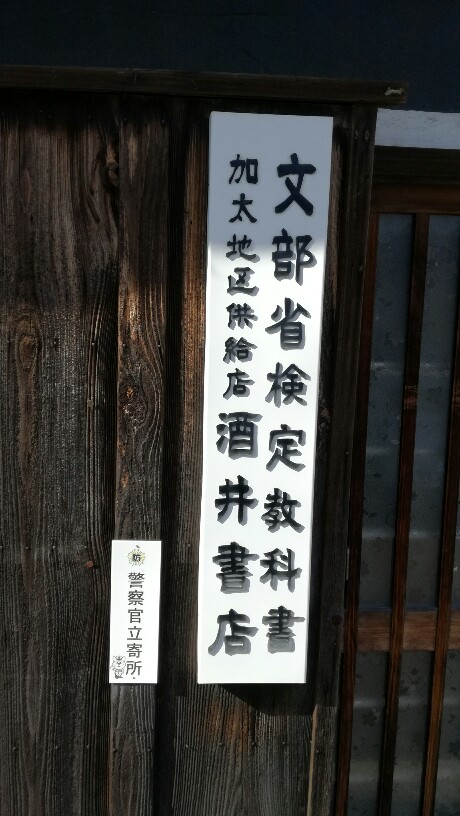 文部省検定教科書
加太地区供給店酒井書店
防
警察官立寄所